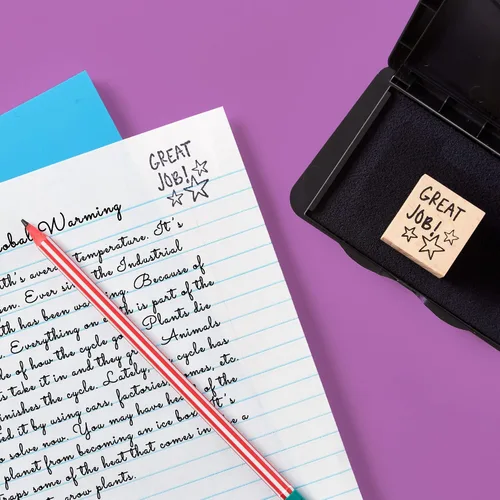 GREAT
JOB!
Global Warming
average temperature. It's
Ever the Industrial
has been Because of
Everything on is part of the
of how the cycle Plants die
take it in and they Animals
finishes the cycle. Lately cycle has
it by using cars, factories, etc.
solve now. You may have of the
planet from becoming an ice box. It's
traps some of the heat that comes in a
grow plants.
GREAT
JOB!